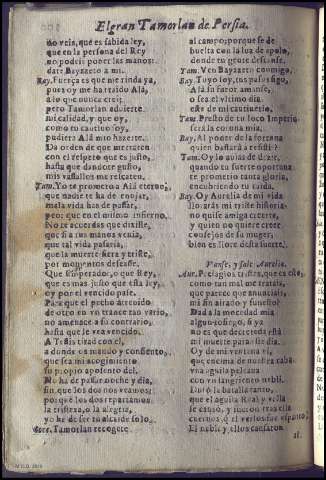 El gran Tamorlan de Persia.
no veis, que es sabida ley,
que en la persona del Rey
no podrâ poner las manos:
date Bayazeto a mi.
Ray. Fuerça es que me rinda ya,
pues oy me ha traido Alâ,
a lo que nunca crei:
pero Tamorlan advierte
mi calidad, y que oy,
como tu cautivo soy,
pudiera Alâ mio hazerte.
Da orden de que me traten
con el respeto que es justo,
hasta que dandote gusto,
mis vassallos me rescaten.
Tam. Yo te prometo a Alâ eterno,
que nadie te ha de enojar,
mala vida has de passar,
peor que en el mismo infierno.
No te acuerdas que dixiste,
que si a tus manos venia,
que tal vida passaria,
que la muerte fiera y triste,
por momentos
Que Emperador, o que Rey,
que es mas justo que esta ley,
oy por el vencido passe.
Para que el pecho atrevido
de otro en un trance tan vario,
no amenace a su contrario,
hasta que le vea vencido.
A Tefis tirad con el,
a donde os mando y consiento,
que sea mi acogimiento
su propio aposento del.
No ha de passar noche y dia,
sin que los dos nos veamos:
porque los dos repartamos
la tristeza, o la alegria,
yo he de ser tu alcaide solo.
Tamorlan recoge te
al campo, porque se de
buelta con la luz de apolo,
donde tu gente descanse.
Tam. Ven Bayazeto conmigo,
Bay. Tuyo soy, tus passos sigo,
Alâ su furor amanse,
o sea el ultimo dia
este de mi cautiverio.
Tam. Presto de tu loco Imperio
serâ la corona mia,
Bay. Al poder de la fortuna
quien bastarâ a resistir?
Tam. Oy lo acabas de dezir,
quando tu fuerte oportuna
te prometio tanta gloria,
encubriendo tu caida.
Bay. Oy Aurelia de mi vida
llorarâs mi triste historia:
no quise amiga creerte,
y quien no quiere creer
consejos de su muger,
bien es llore desta suerte.
Vanse, y sale Aurelia.
Aur. Presagios tristes, que es esto,
como tan mal me tratais,
que parece que anunciais,
mi fin airado y funesto?
Dad a la mocedad mia
algun sossiego, si ya
no es que decretada està
mi muerte para este dia.
Oy de mi ventana vi,
que encima de nuestra cabaña
una aguila
con un tan turbi.
Durô la batalla tanto,
que el aguila Real y
se cansô, y hizieron tras ella
cuervos, q̃ el verlos fue espanto,
El noble y ellos cansaron